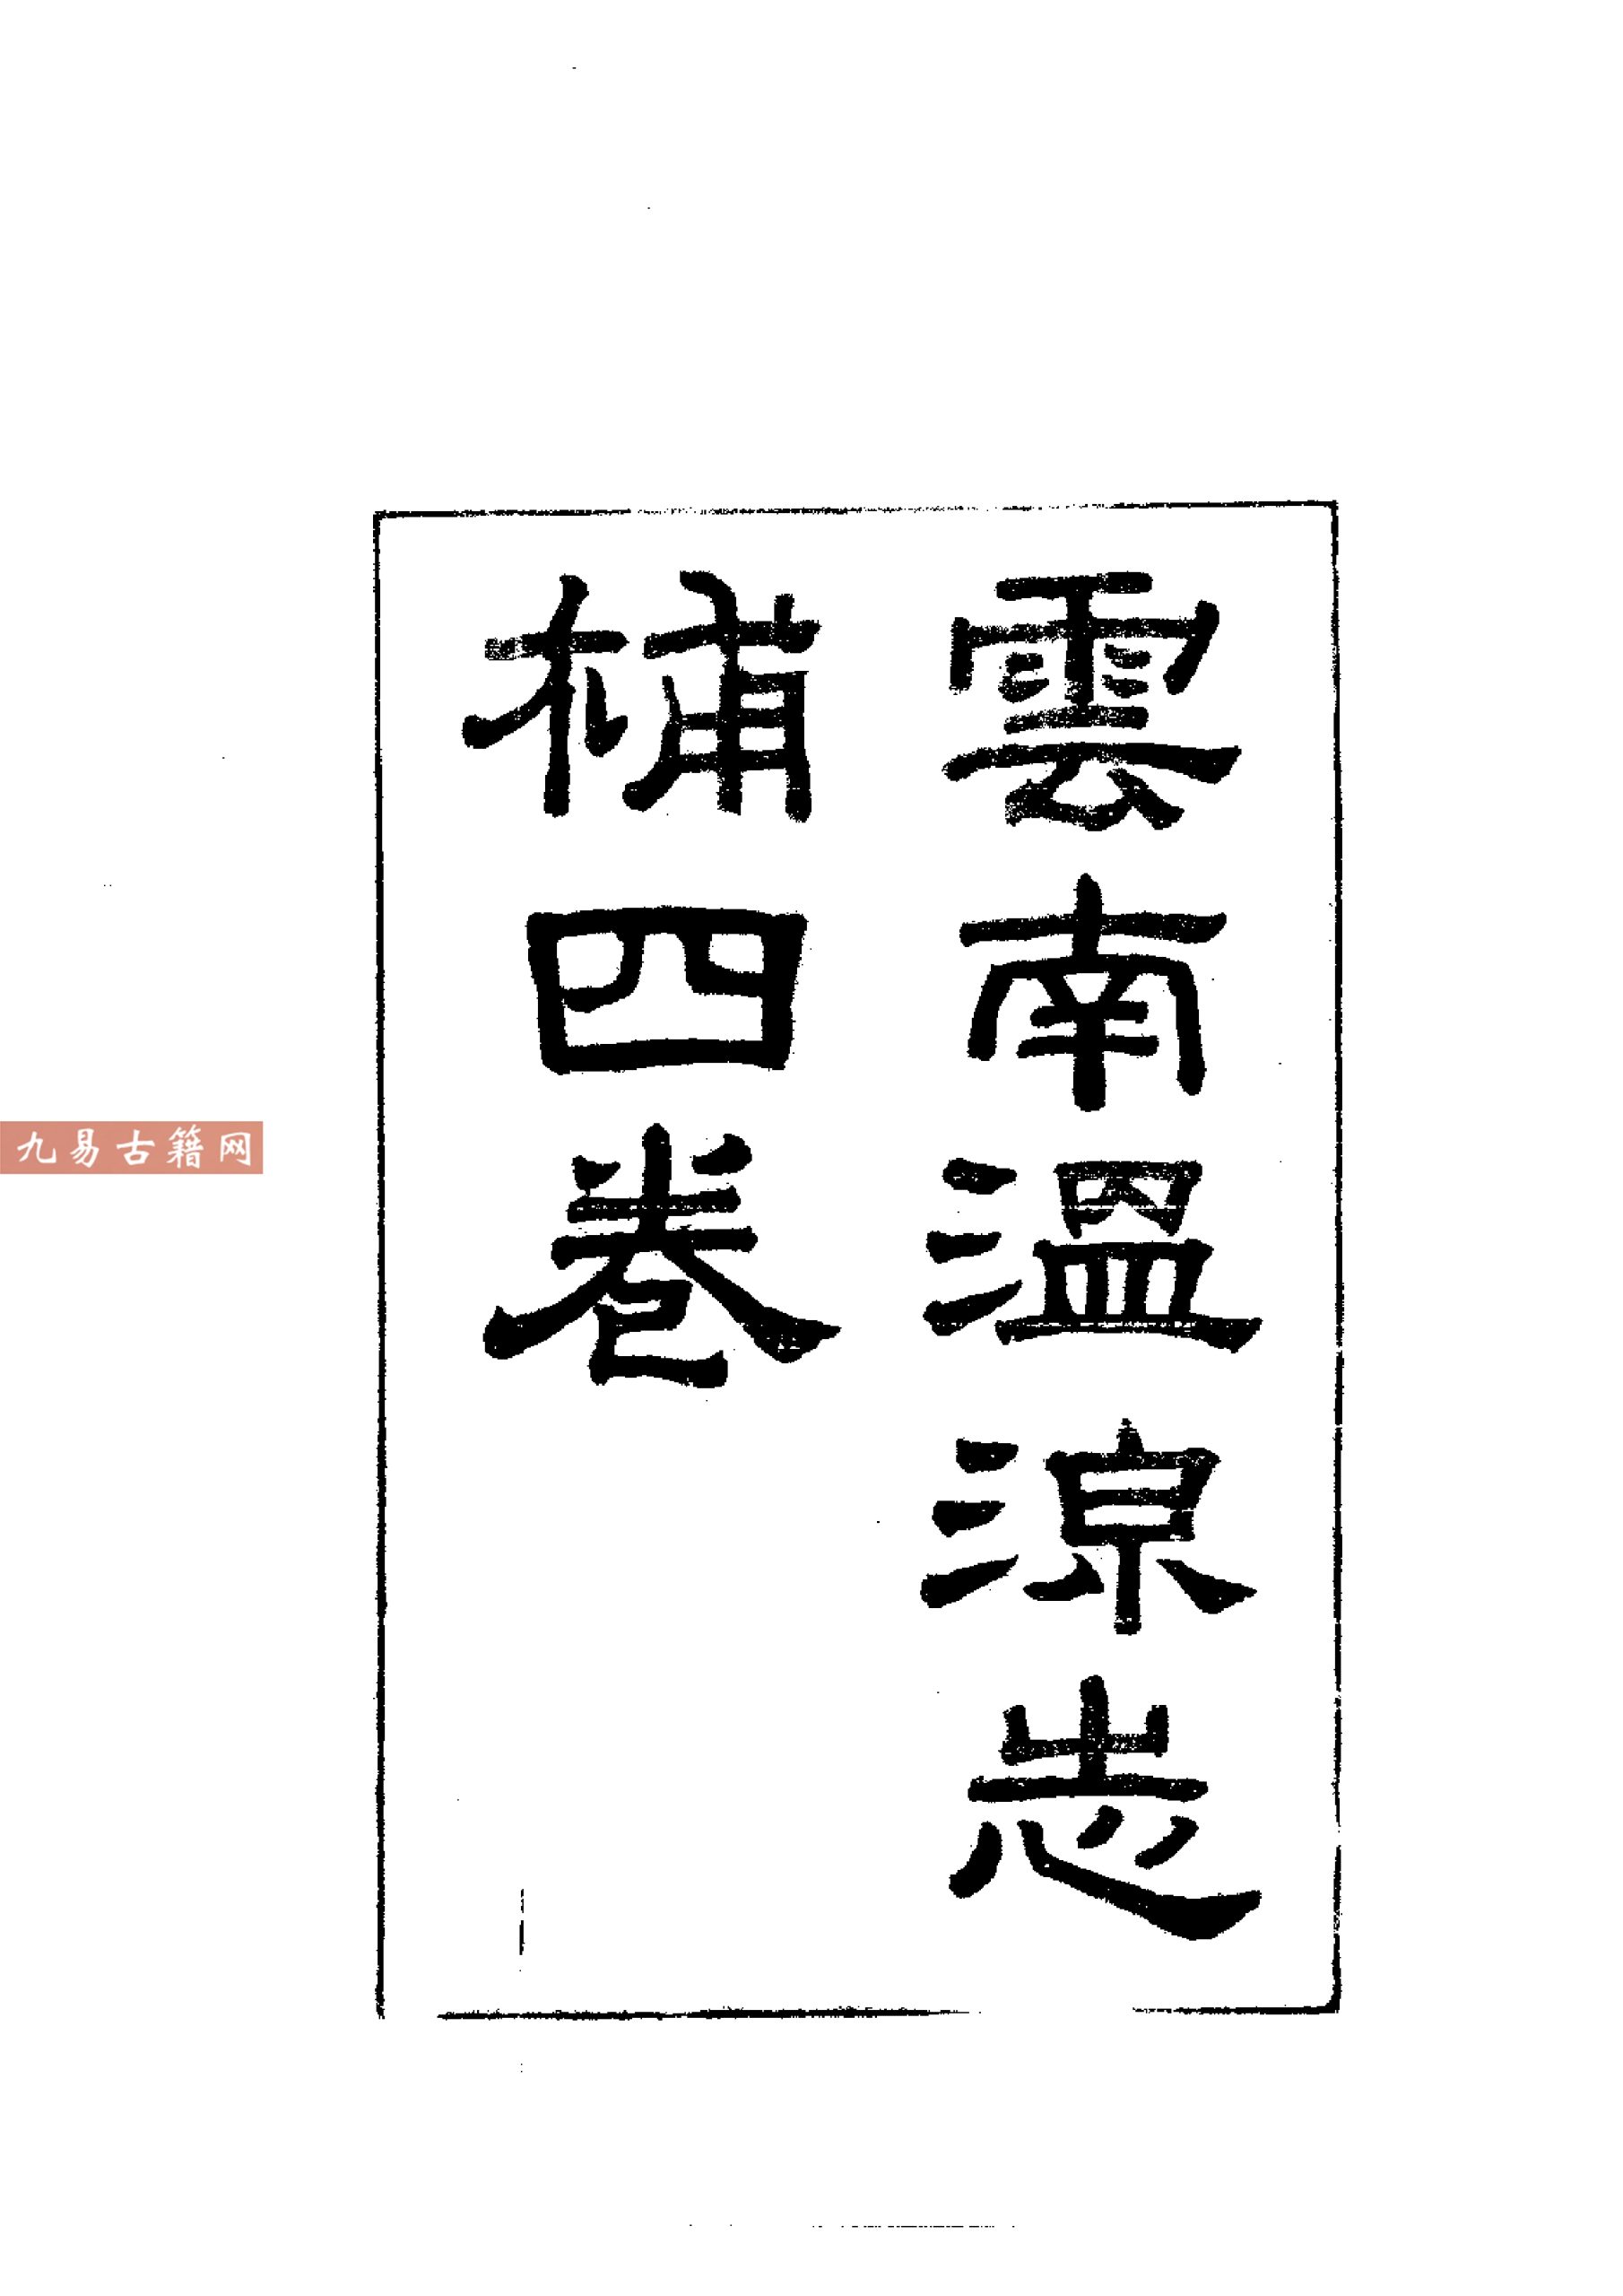 雲南溫涼志
補四卷
九易古籍网